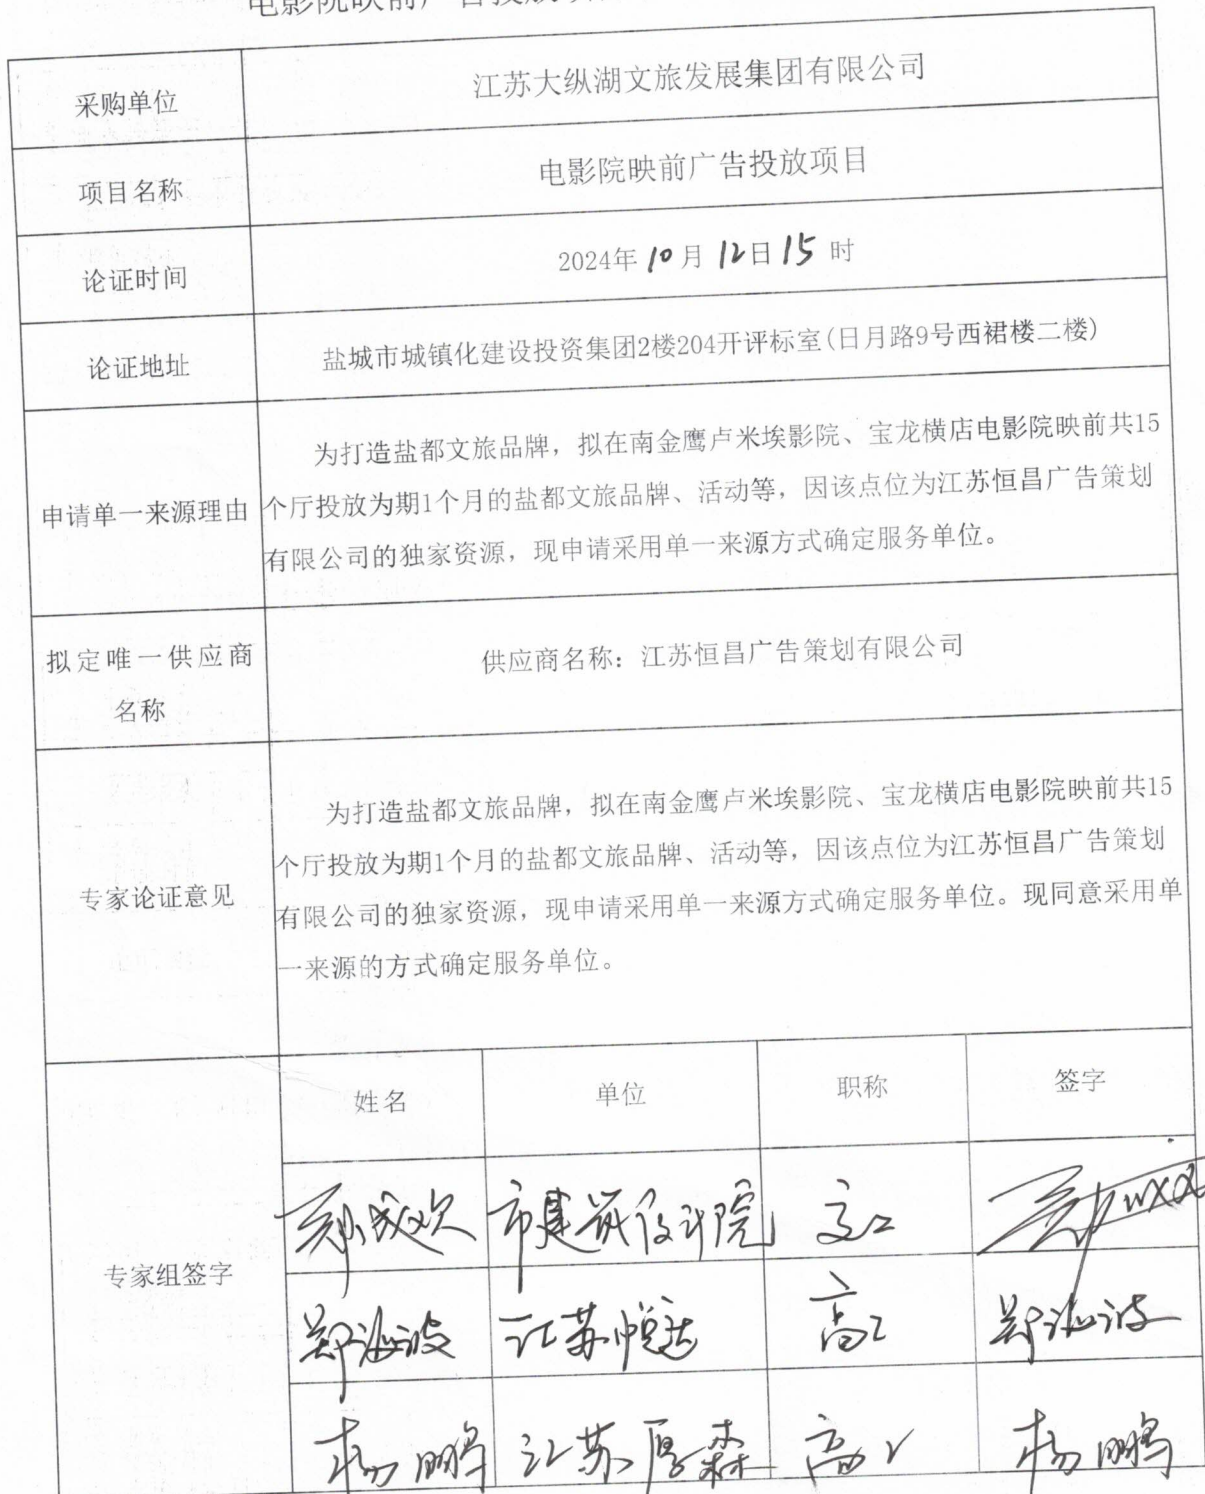 电影院映前广告投放项
采购单位
江苏大纵湖文旅发展集团有限公司
项目名称
电影院映前广告投放项目
论证时间
2024年10月12日15时
论证地址
盐城市城镇化建设投资集团2楼204开评标室(日月路9号西裙楼二楼)
申请单一来源理由
为打造盐都文旅品牌，拟在南金鹰卢米埃影院、宝龙横店电影院映前共15
个厅投放为期1个月的盐都文旅品牌、活动等，因该点位为江苏恒昌广告策划
有限公司的独家资源，现申请采用单一来源方式确定服务单位。
拟定唯一供应商
名称
供应商名称：江苏恒昌广告策划有限公司
专家论证意见
为打造盐都文旅品牌，拟在南金鹰卢米埃影院、宝龙横店电影院映前共15
个厅投放为期1个月的盐都文旅品牌、活动等，因该点位为江苏恒昌广告策划
有限公司的独家资源，现申请采用单一来源方式确定服务单位。现同意采用单
一来源的方式确定服务单位。
专家组签字
姓名 单位 职称 签字
市建筑设计院 高工
郑海波 江苏悦达 高工 郑海波
杨鹏 江苏厚森 高工 杨鹏